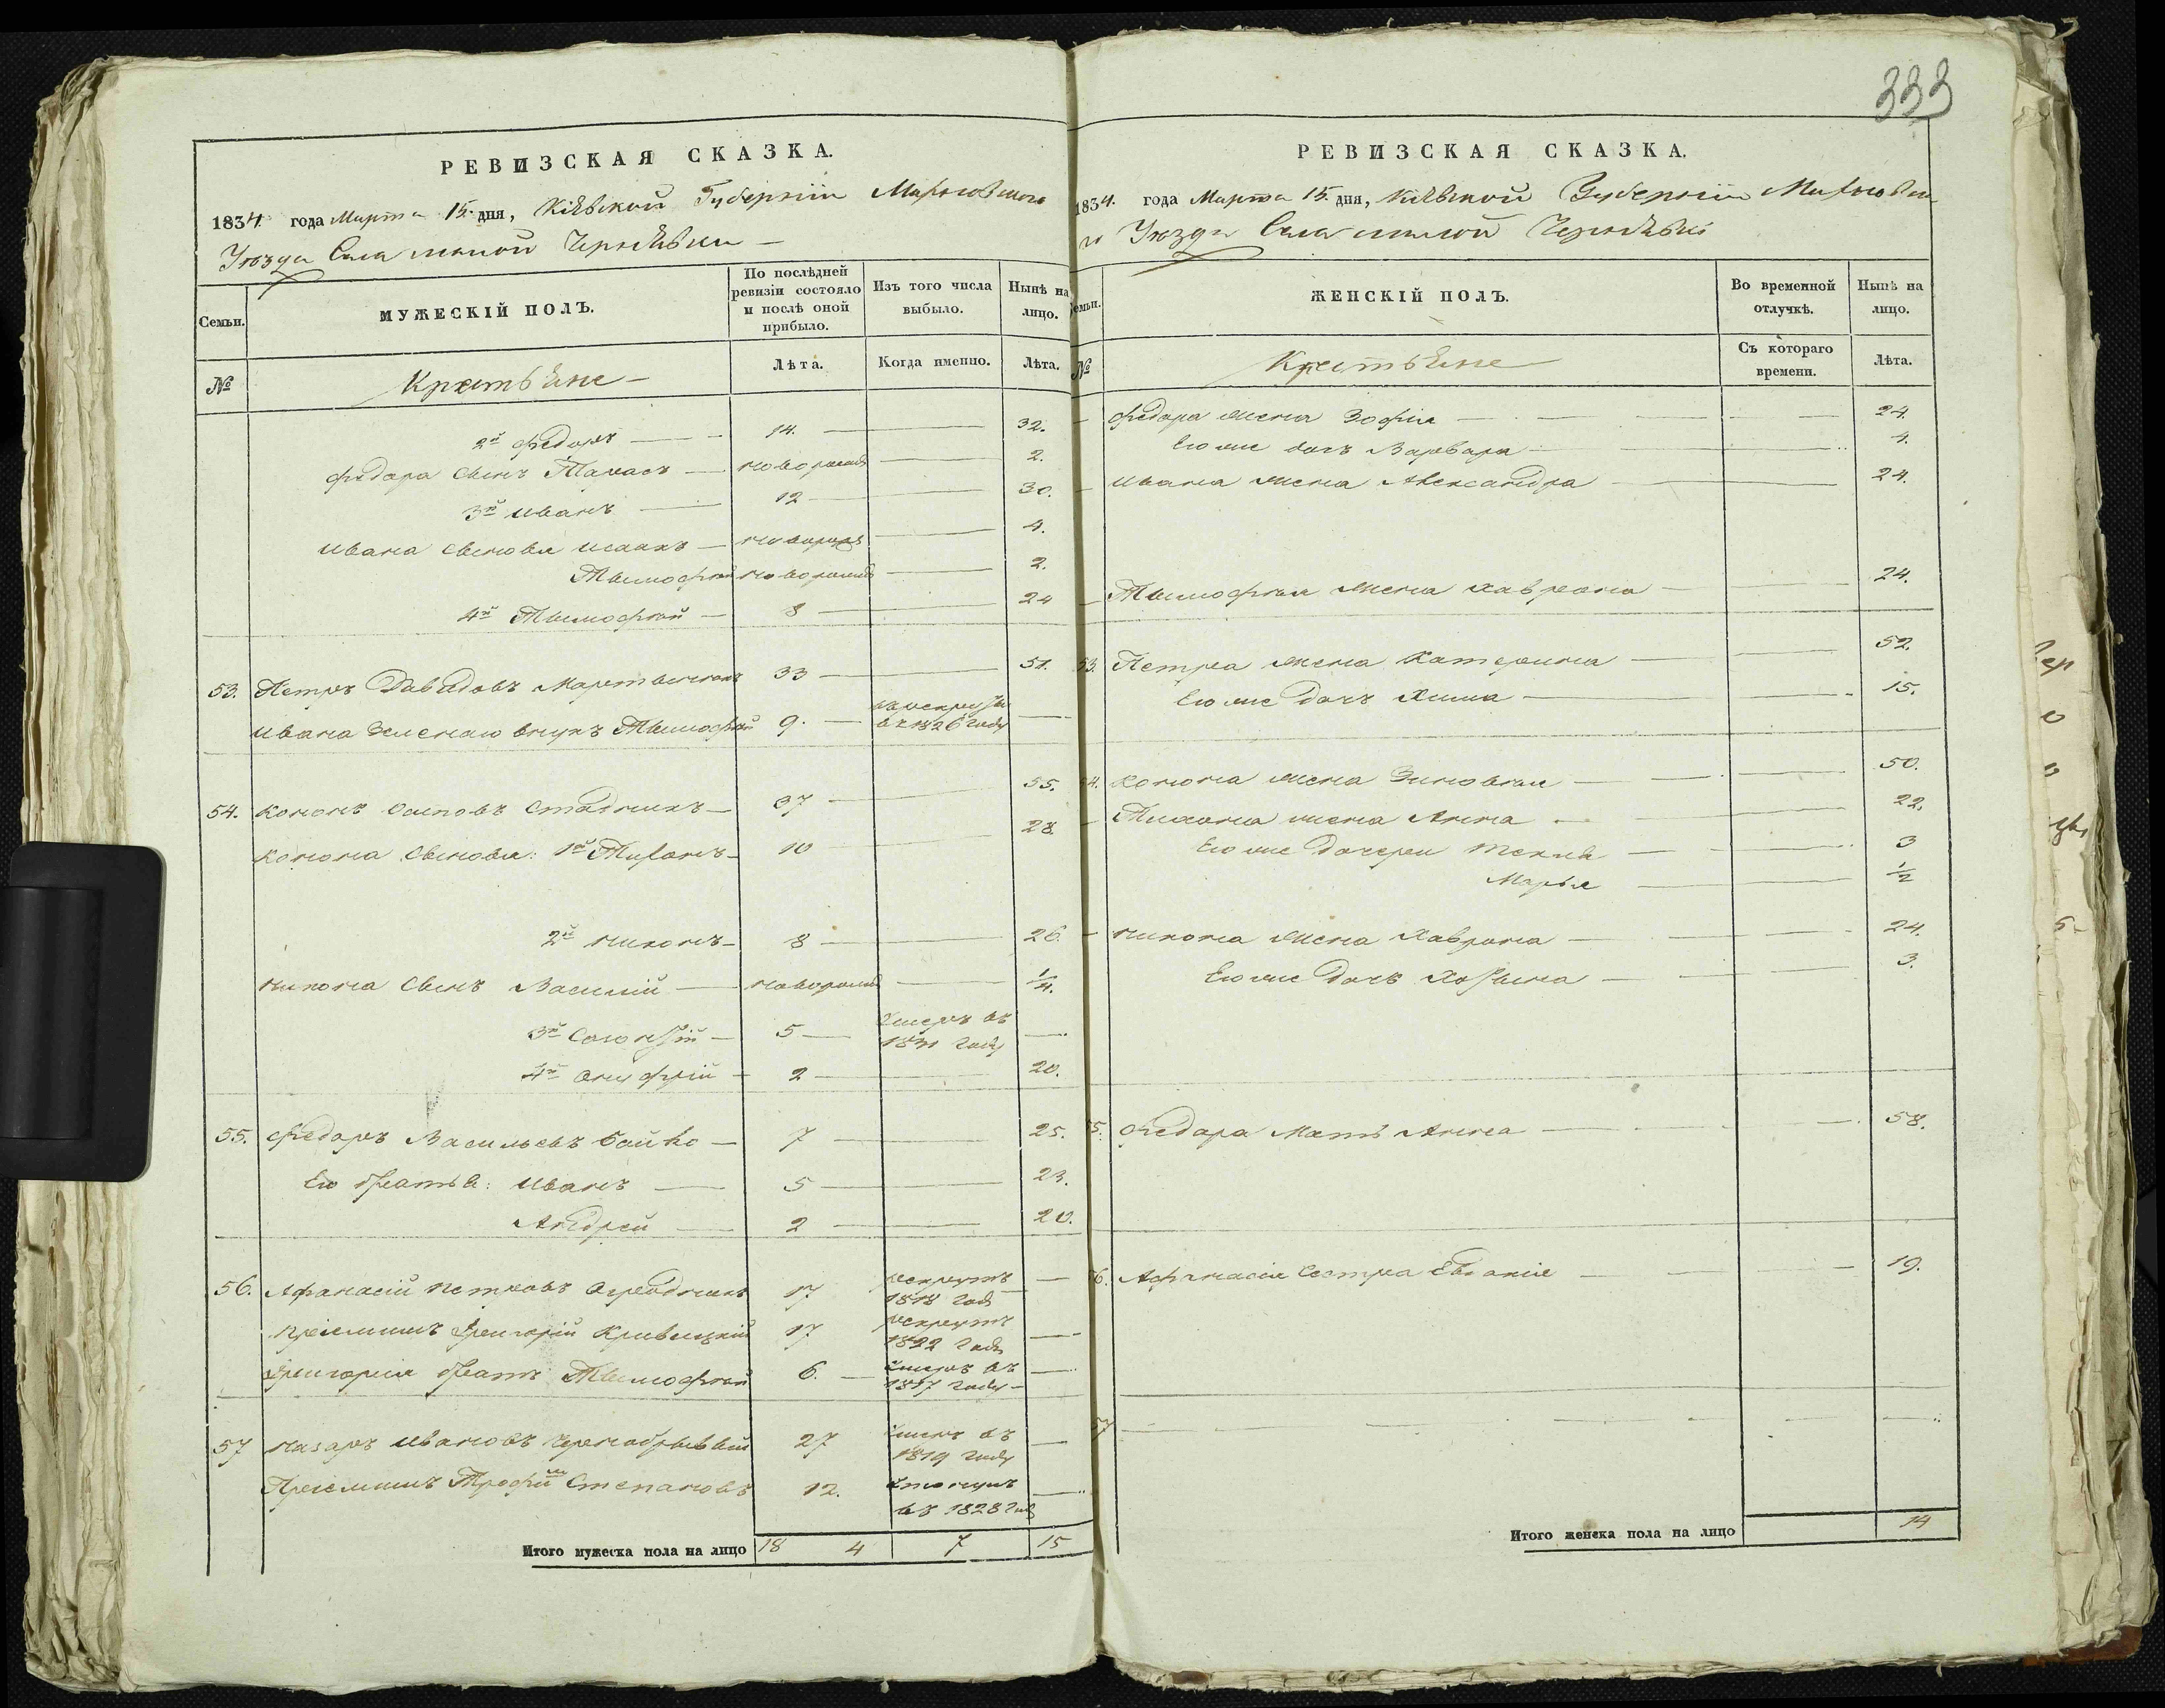 333
РЕВИЗСКАЯ СКАЗКА.
1834 года Марта 15. дня, Кіевской Губерніи Махновскаго
Уезда Села Малой Чернявки
Семьи.
МУЖЕСКІЙ ПОЛЪ.
По послѣдней ревизіи состояло и послѣ оной прибыло.
Изъ того числа выбыло.
Нынѣ на лицо.
№
Крестьяне
Лѣта.
Когда именно.
Лѣта.
2й Федоръ 14. 32.
Федора сынъ Тарасъ новорожд 2.
3й Иванъ 12 30.
Ивана сыновья Исаакъ новорожд 4.
Тимофей новорожд 2.
4й Тимофей 8 24
53. Петръ Давидовъ 33 51.
Ивана внукъ Тимофей 9. въ рекруты въ 1826 году
54. Кононъ Осиповъ Стадникъ 37 55.
Конона сыновья: 1й Тихонъ 10 28
2й Никонъ 8 26
Никона сынъ Василий новорожд 1/4.
3й 5 Умеръ въ 1831 году
4й Онуфрій 2 20.
55. Федоръ Васильевъ Бойко 7 25.
Его братья: Иванъ 5 23.
Андрей 2 20.
56. Афанасій Петровъ Огродникъ 17 рекрутъ 1818 года
Пріемышъ Григорій Кривицкій 17 рекрутъ 1822 года
Григорія братъ Тимофей 6. Умеръ въ 1817 году
57 Назаръ Ивановъ Чернобривый 27 Умеръ въ 1819 году
Пріемышъ Трофимъ Степановъ 12. въ 1828 году
Итого мужеска пола на лицо 18 4 7 15
РЕВИЗСКАЯ СКАЗКА.
1834. года Марта 15. дня, Кіевской Губерніи Махновска
го Уезда Села Малой Чернявки
Семьи.
ЖЕНСКІЙ ПОЛЪ.
Во временной отлучкѣ.
Нынѣ на лицо.
№
Крестьяне
Съ котораго времени.
Лѣта.
Федора жена Зофія 24.
Его же дочь Варвара 4.
Ивана жена Александра 24.
Тимофея жена Хаврона 24.
53. Петра жена Катерина 52.
Его же дочь Химка 15.
54. Конона жена Зиновия 50.
Тихона жена Анна 22.
Его же дочери Текля 3
Марья 1/2
Никона жена Хаврона 24.
Его же дочь 3.
55. Федора мать Анна 58.
56. Афанасія сестра 19.
57
Итого женска пола на лицо 14